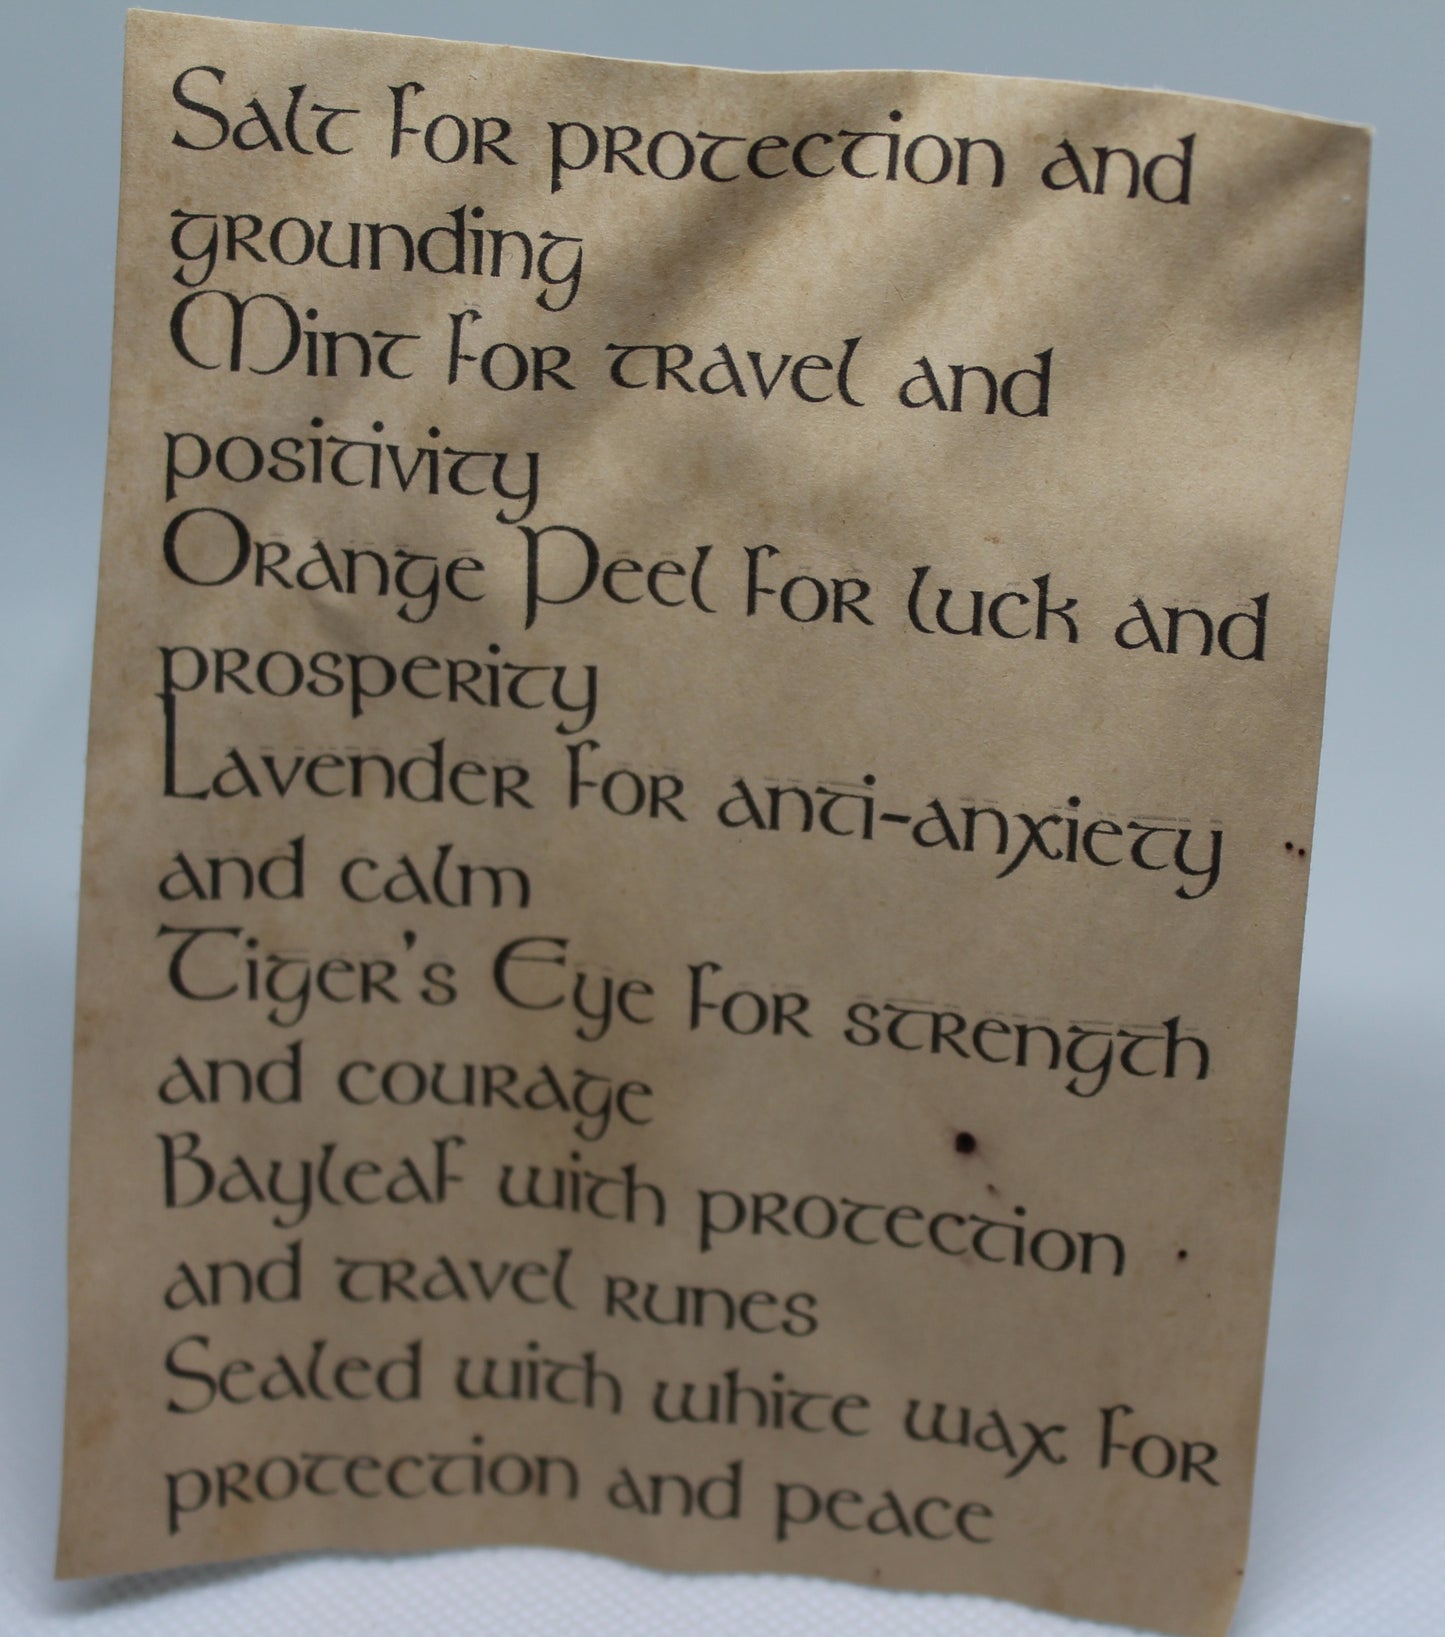 Salt for protection and
grounding
Mint for travel and
positivity
Orange Peel for luck and
prosperity
Lavender for anti-anxiety
and calm
Tiger's Eye for strength
and courage
Bayleaf with protection
and travel runes
Sealed with white wax for
protection and peace